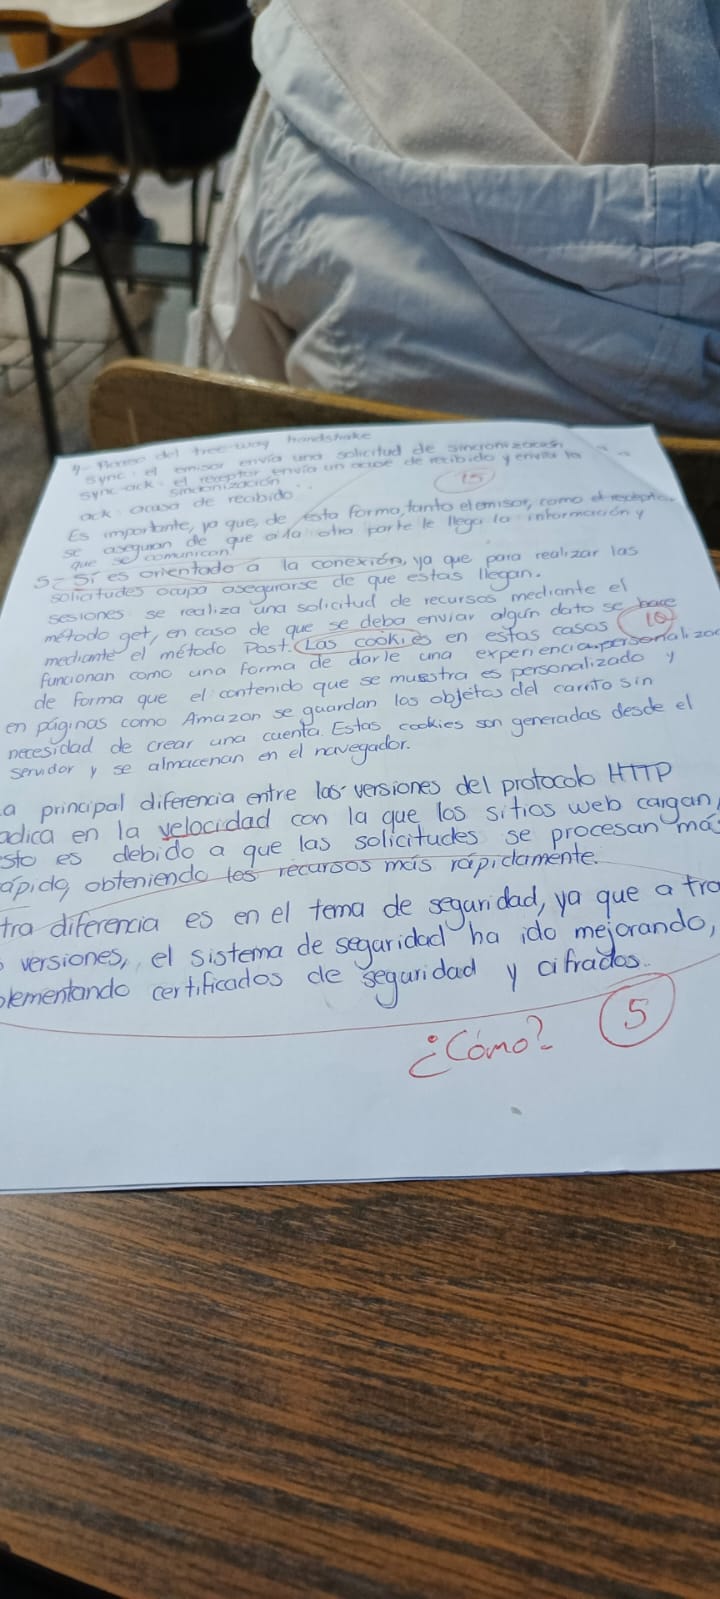 4- Planeo del tree-way handshake
sync: el emisor envía una solicitud de sincronización
sync-ack: el receptor envía un acuse de recibido y envía la
sincronización
15
ack: acuso de recibido
Es importante, ya que, de esta forma, tanto el emisor, como el receptor
se aseguran de que a la otra parte le llega la información y
que se comunican
5- Sí es orientado a la conexión, ya que para realizar las
solicitudes ocupa asegurarse de que estas llegan.
sesiones: se realiza una solicitud de recursos mediante el
método get, en caso de que se deba enviar algún dato se hace
mediante el método Post. Las cookies en estas casos
10
funcionan como una forma de darle una experiencia personaliza
de forma que el contenido que se muestra es personalizado y
en páginas como Amazon se guardan los objetos del carrito sin
necesidad de crear una cuenta. Estas cookies son generadas desde el
servidor y se almacenan en el navegador.
a principal diferencia entre las versiones del protocolo HTTP
adica en la velocidad con la que los sitios web cargan,
sto es debido a que las solicitudes se procesan má
ápido, obteniendo los recursos más rápidamente.
tra diferencia es en el tema de seguridad, ya que a tra
s versiones, el sistema de seguridad ha ido mejorando,
plementando certificados de seguridad y cifrados.
¿Cómo?
5